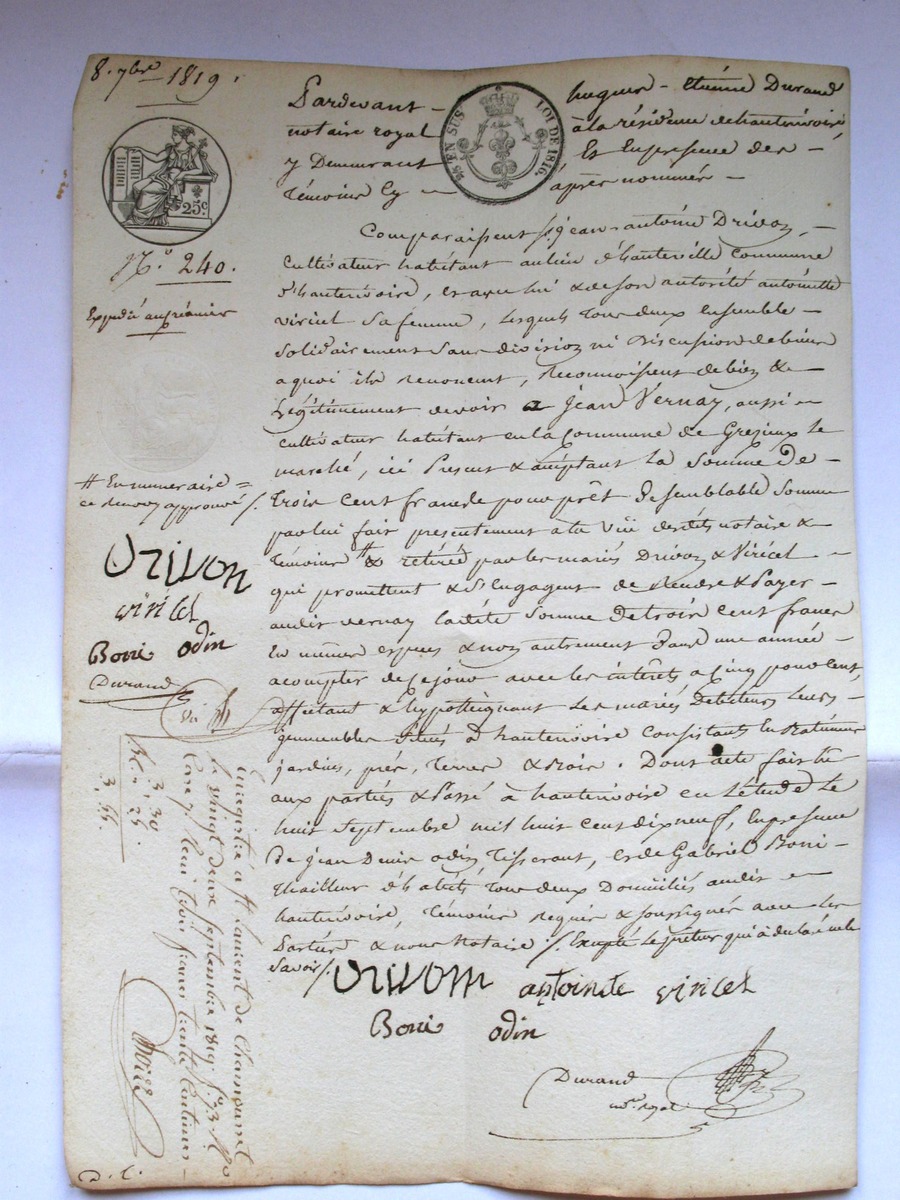 8. 7bre 1819.
Pardevant hugues - étienne Durand
notaire royal à la résidence dehauterivoire,
y Demeurant Et En presence des
témoins Cy après nommés
25 EN SUS LOI DE 1816.
25c.
N.o 240.
Expédié au premier
Comparaissent Sr jean-antoine Drivon,
Cultivateur habitant au lieu d'hauteville Commune
d'hauterivoire, et avec lui & de son autorité antoinette
viricel Sa femme, lesquels tous deux Ensemble
Solidairement Sans division ni discussion de biens
a quoi ils renoncent, Reconnoissent de bien &
légitimement devoir a jean Vernay, aussi
Cultivateur habitant en la Commune de Grezieux le
marché, ici Present & acceptant la Somme de
trois Cent francs pour prêt de semblable Somme
par lui fait presentement à la vüe desdits notaire &
témoins # & retirée par les mariés Drivon & Viricel
qui promettent & S'Engagent de Rendre & Payer
audit vernay ladite Somme de trois Cent francs
En mêmes espèces & non autrement Dans une année
a compter de Ce jour avec les intérêts a Cinq pour Cent,
affectant & hypothéquant les mariés Debiteurs leurs
immeubles Situés à hauterivoire Consistants En Batiments
jardins, prés, terres & bois. Dont acte fait lu
aux parties & Passé à hauterivoire en l'étude le
huit Septembre mil huit Cent dix neuf, En presence
De jean Denis odin tisserant, et de Gabriel Borri
tailleur d'habits, tous deux Domiciliés audit
hauterivoire, témoins Requis & soussignés avec les
Parties & nous Notaire ./. Excepté le preteur qui à declaré ne le
Savoir /.
# En numeraire =
ce renvoy approuvé /.
Drivon
viricel
Borri odin
Durand
Drivon antoinete viricel
Borri odin
Durand
not. royal
Enregistré à St Laurent de Chamousset
le vingt deux Septembre 1819
Reçu trois francs trente Centimes
3, 30
3, 55.
D. C.